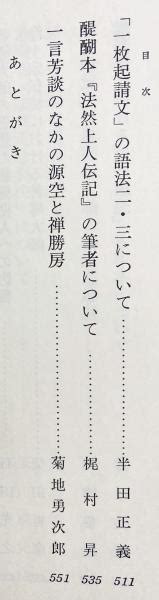 目次
「一枚起請文」の語法二・三について……………………半田正義 511
醍醐本『法然上人伝記』の筆者について……………………梶村昇 535
一言芳談のなかの源空と禅勝房……………………菊地勇次郎 551
あとがき